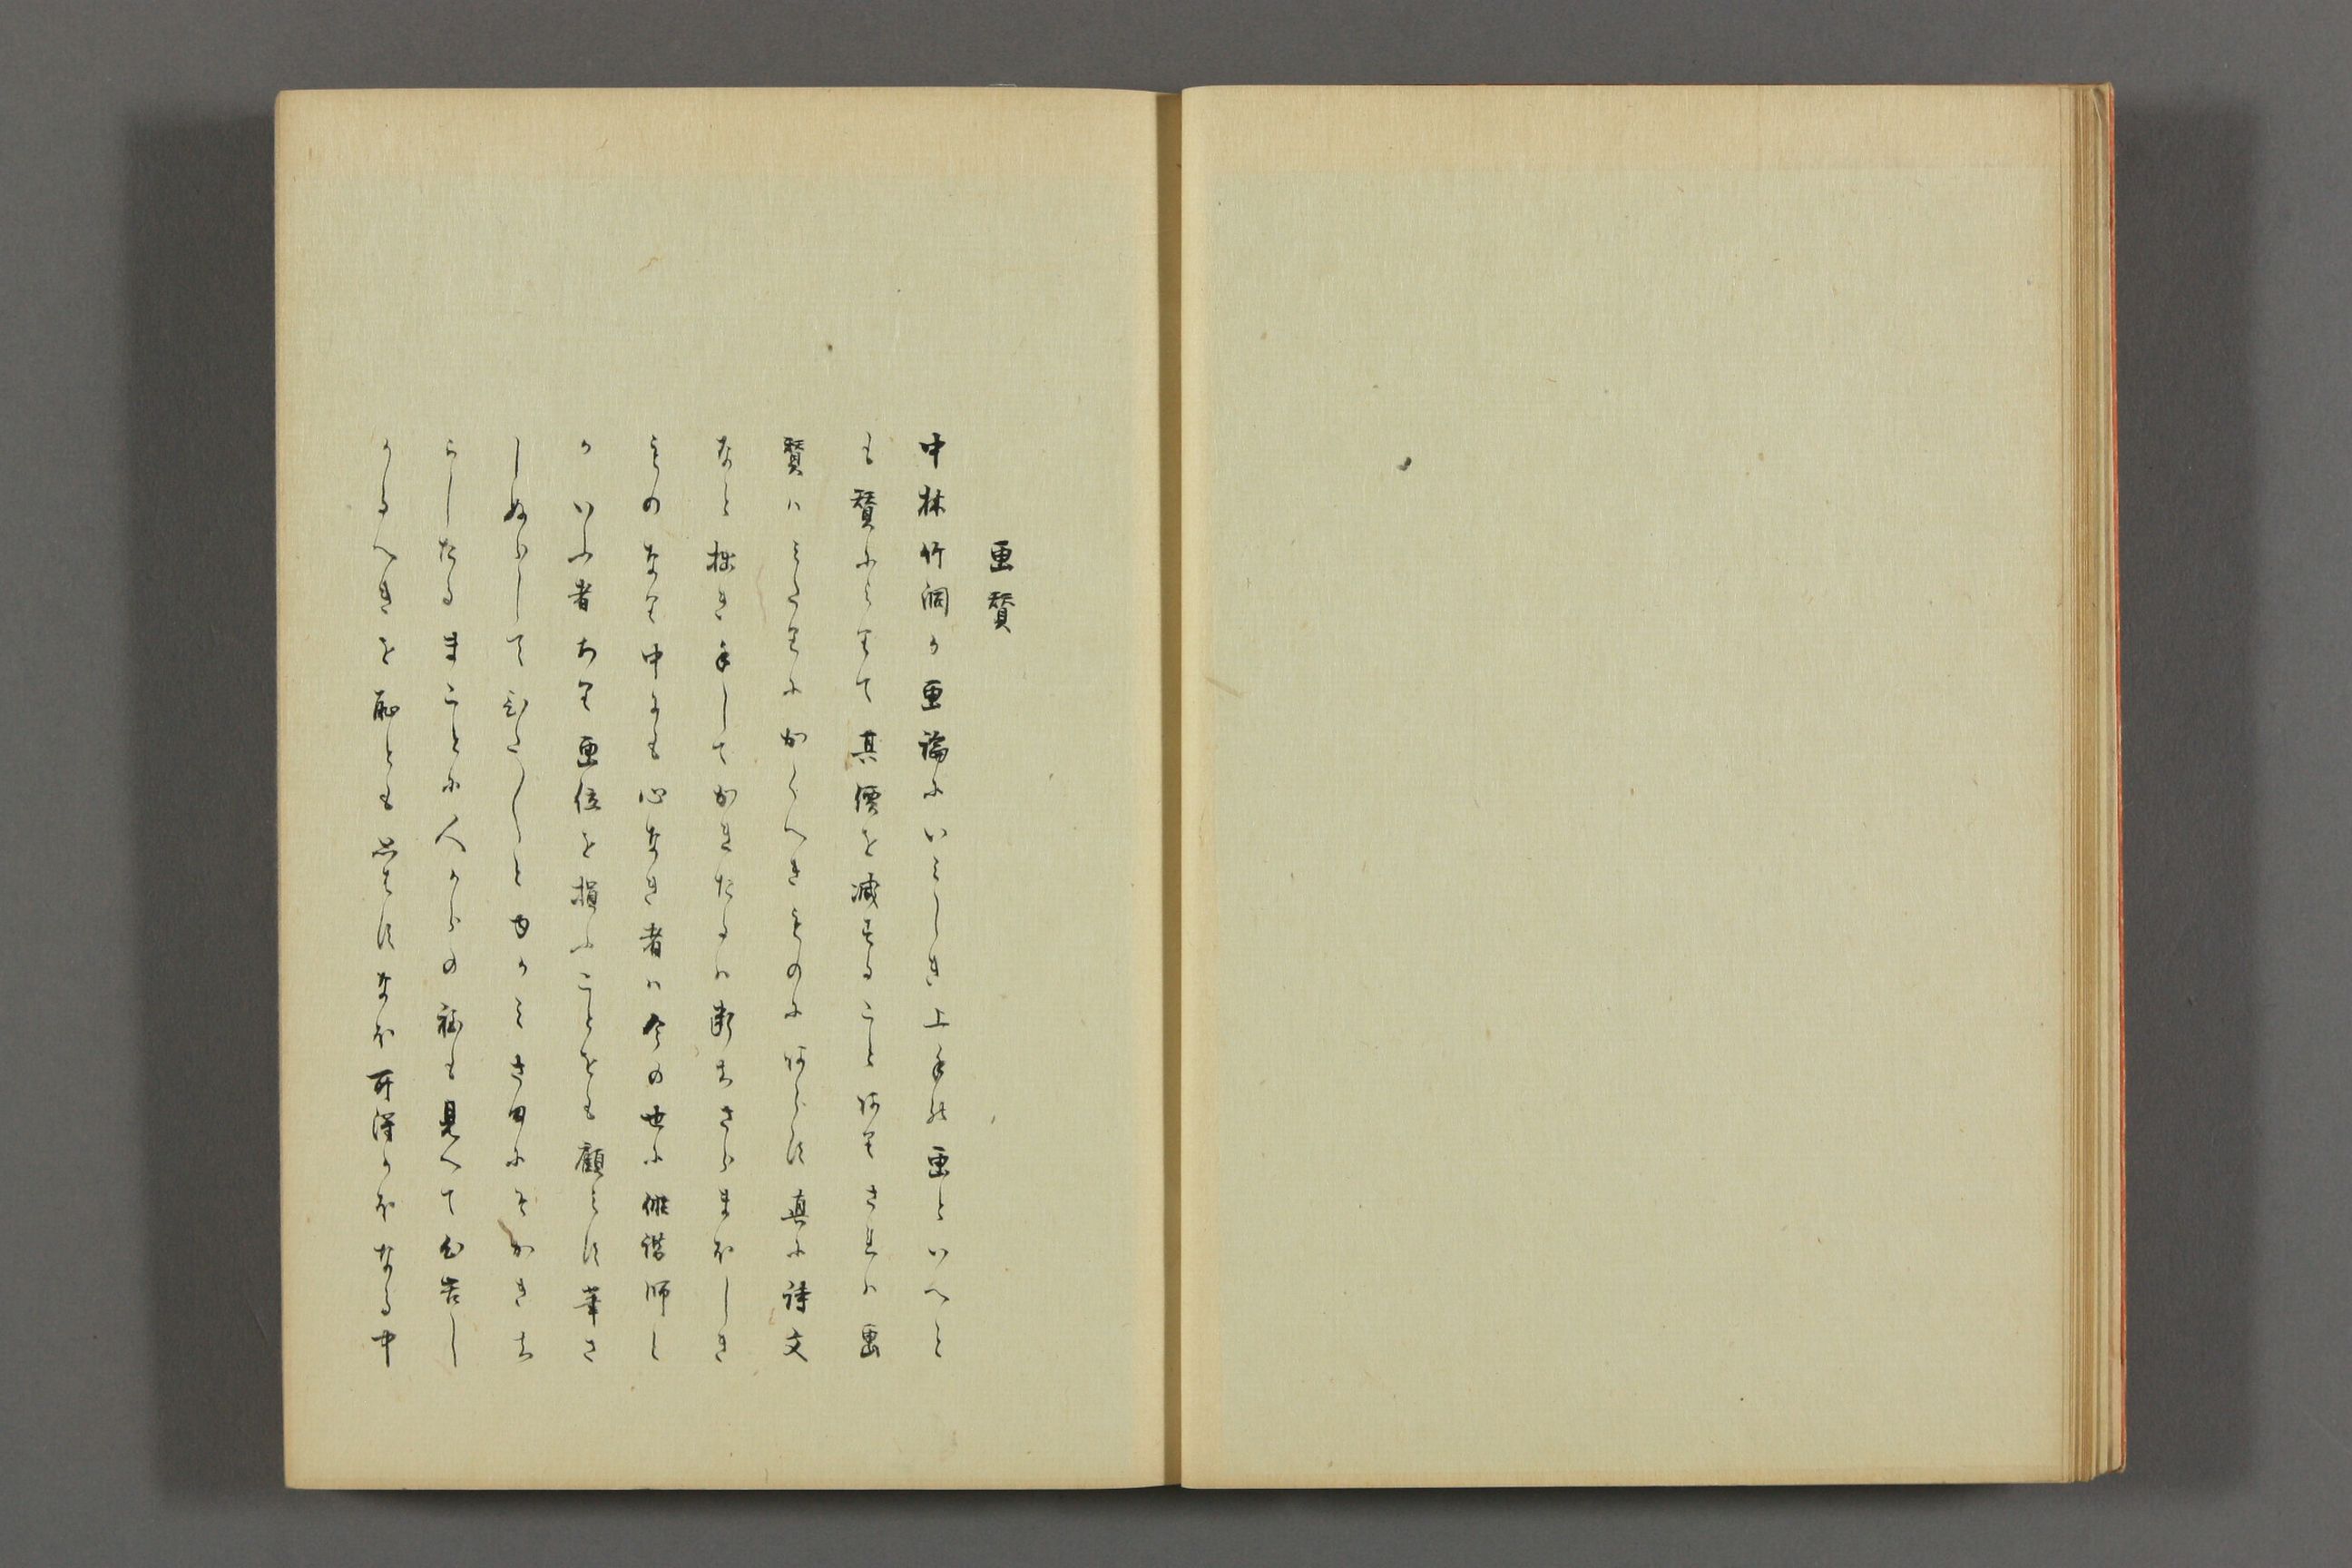 画賛
中林竹洞か画論にいみしき上手の画といへと
も賛によりて其価を減することありされは画
賛はみたりにかくへきものにあらす真に詩文
なと拙き手してかきたるは断はさらまほしき
ものなり中にも心なき者は今の世に俳諧師と
かいふ者あり画位を損ふことをも顧みす華さ
しぬらしてひた〱とゆかみさまにそかきち
らしたるまことに人からの程も見へて心苦し
かるへきを恥とも思はすなほ所得かほなる中